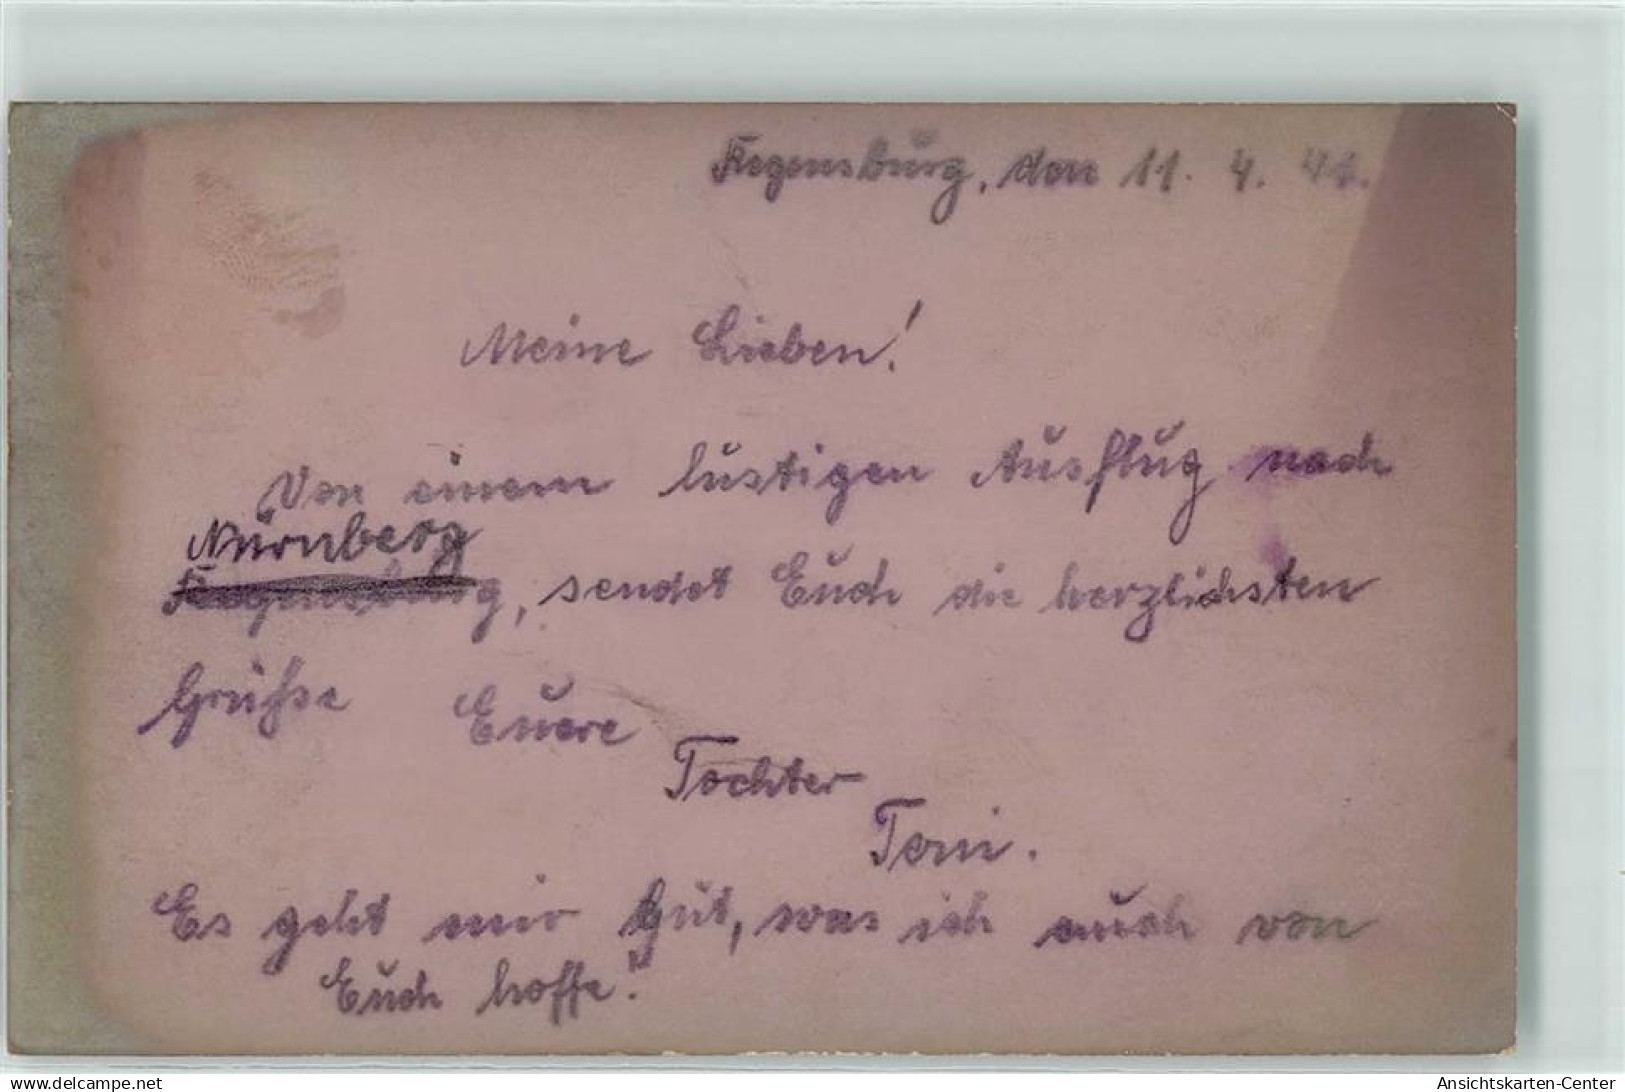 Regensburg, den 11. 4. 41.
Meine Lieben!
Von einem lustigen Ausflug nach
Nürnberg
Regensburg, sendet Euch die herzlichsten
Grüße Euere
Tochter
Toni.
Es geht mir gut, was ich auch von
Euch hoffe!
www.delcampe.net
Ansichtskarten-Center